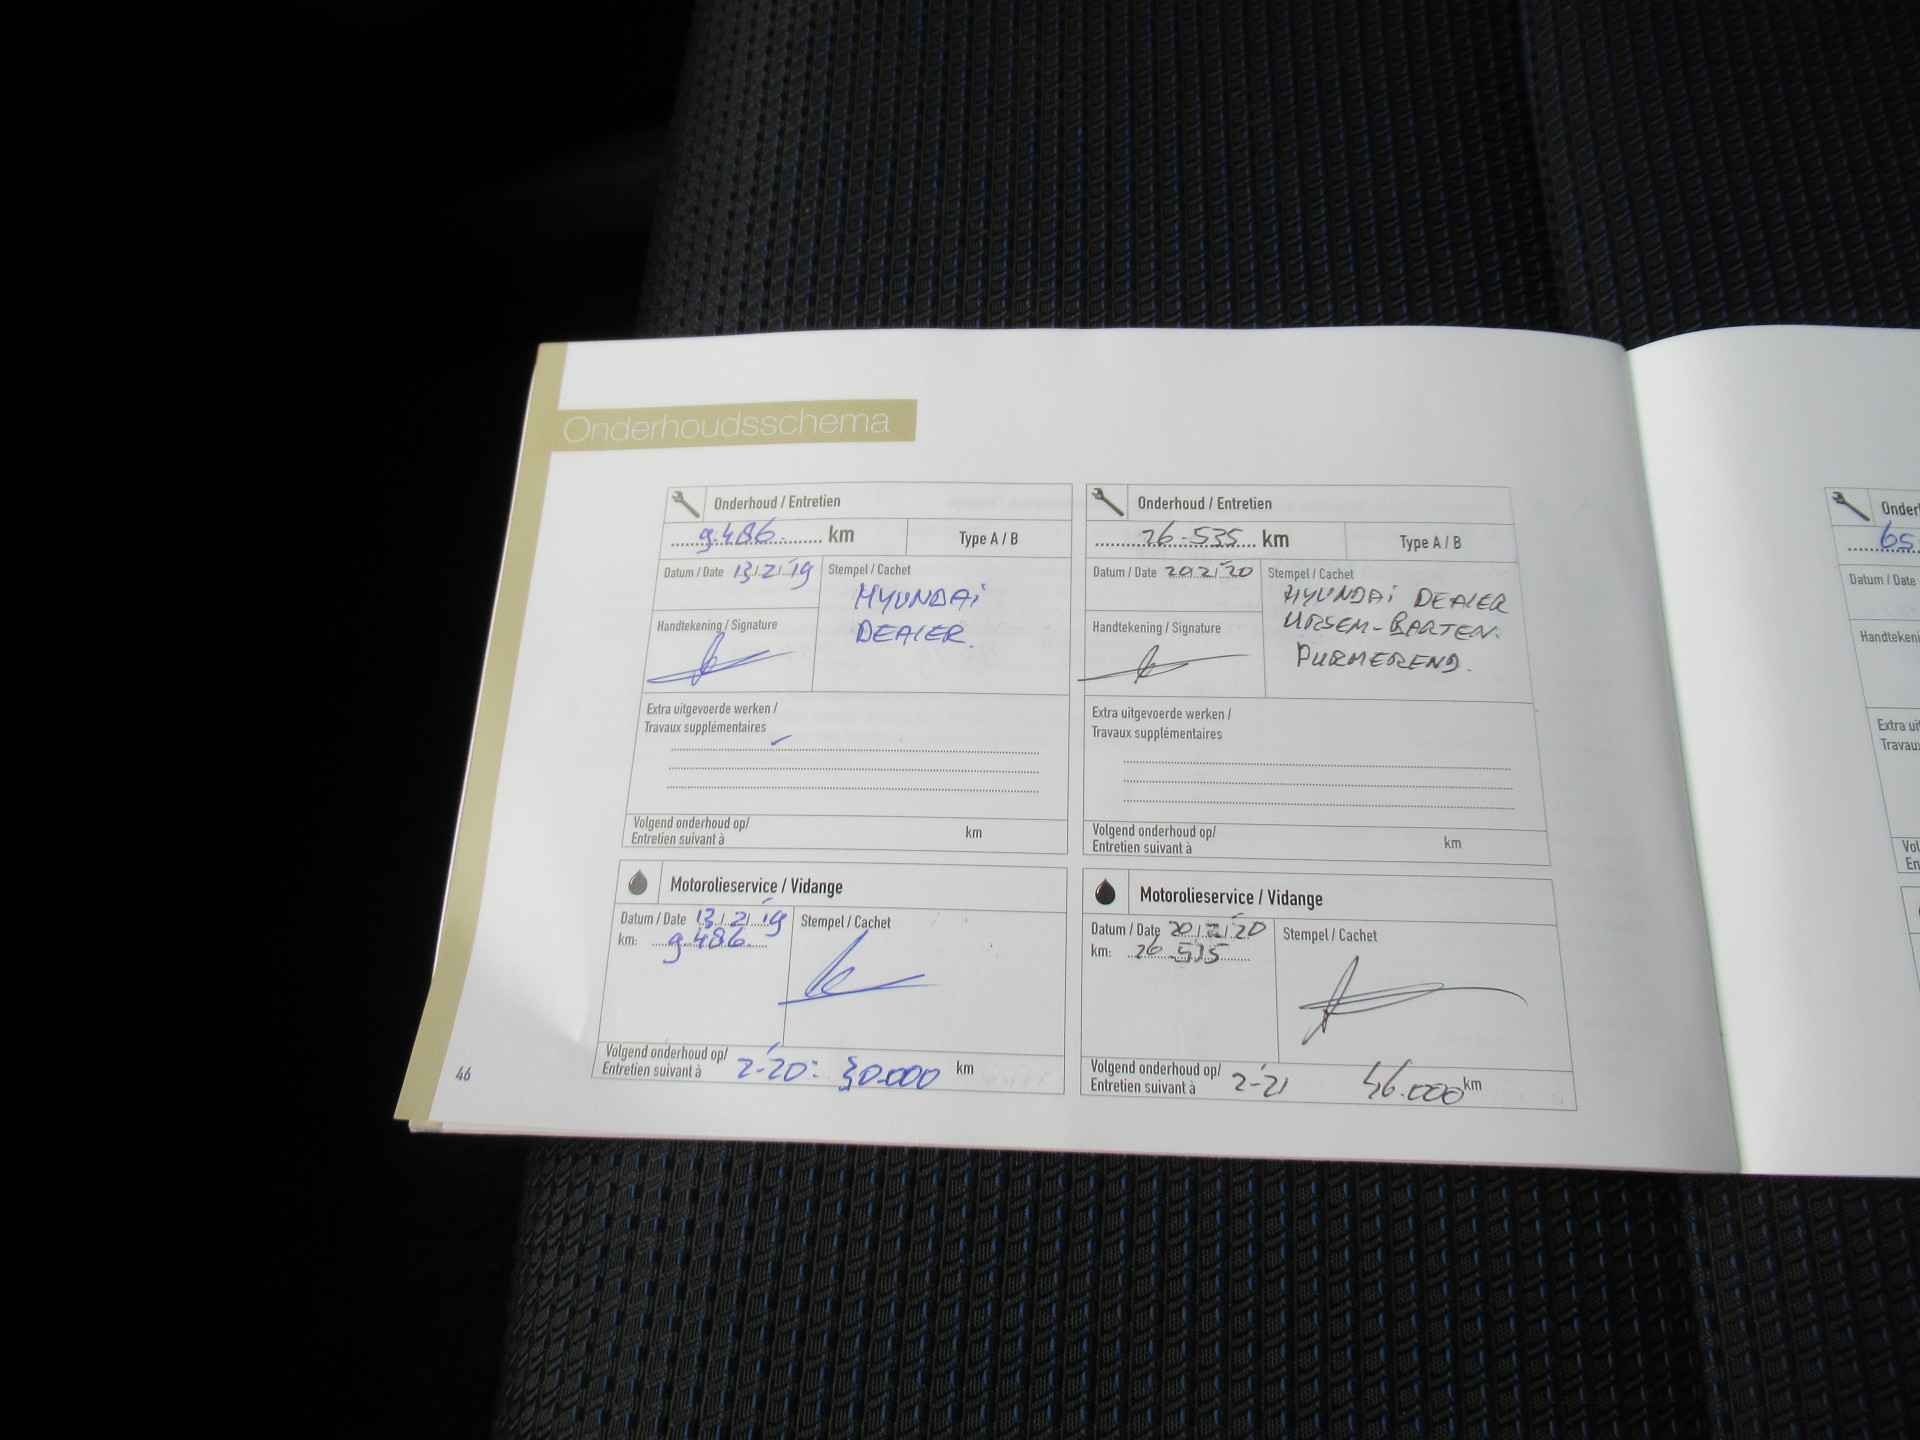 Onderhoudsschema
Onderhoud / Entretien
9.486 km
Type A / B
Datum / Date 13/2/'19
Stempel / Cachet
HYUNDAi
DEALER.
Handtekening / Signature
Extra uitgevoerde werken /
Travaux supplémentaires
Volgend onderhoud op/
Entretien suivant à
km
Motorolieservice / Vidange
Datum / Date 13/2/'19
km: 9.486.
Stempel / Cachet
Volgend onderhoud op/
Entretien suivant à 2-'20: 30.000 km
Onderhoud / Entretien
26.535 km
Type A / B
Datum / Date 20/2/'20
Stempel / Cachet
HYUNDAi DEALER
URSEM-BARTEN.
PURMEREND.
Handtekening / Signature
Extra uitgevoerde werken /
Travaux supplémentaires
Volgend onderhoud op/
Entretien suivant à
km
Motorolieservice / Vidange
Datum / Date 20/2/'20
km: 26.535
Stempel / Cachet
Volgend onderhoud op/
Entretien suivant à 2-'21 km
46
65
Datum / Date
Extra